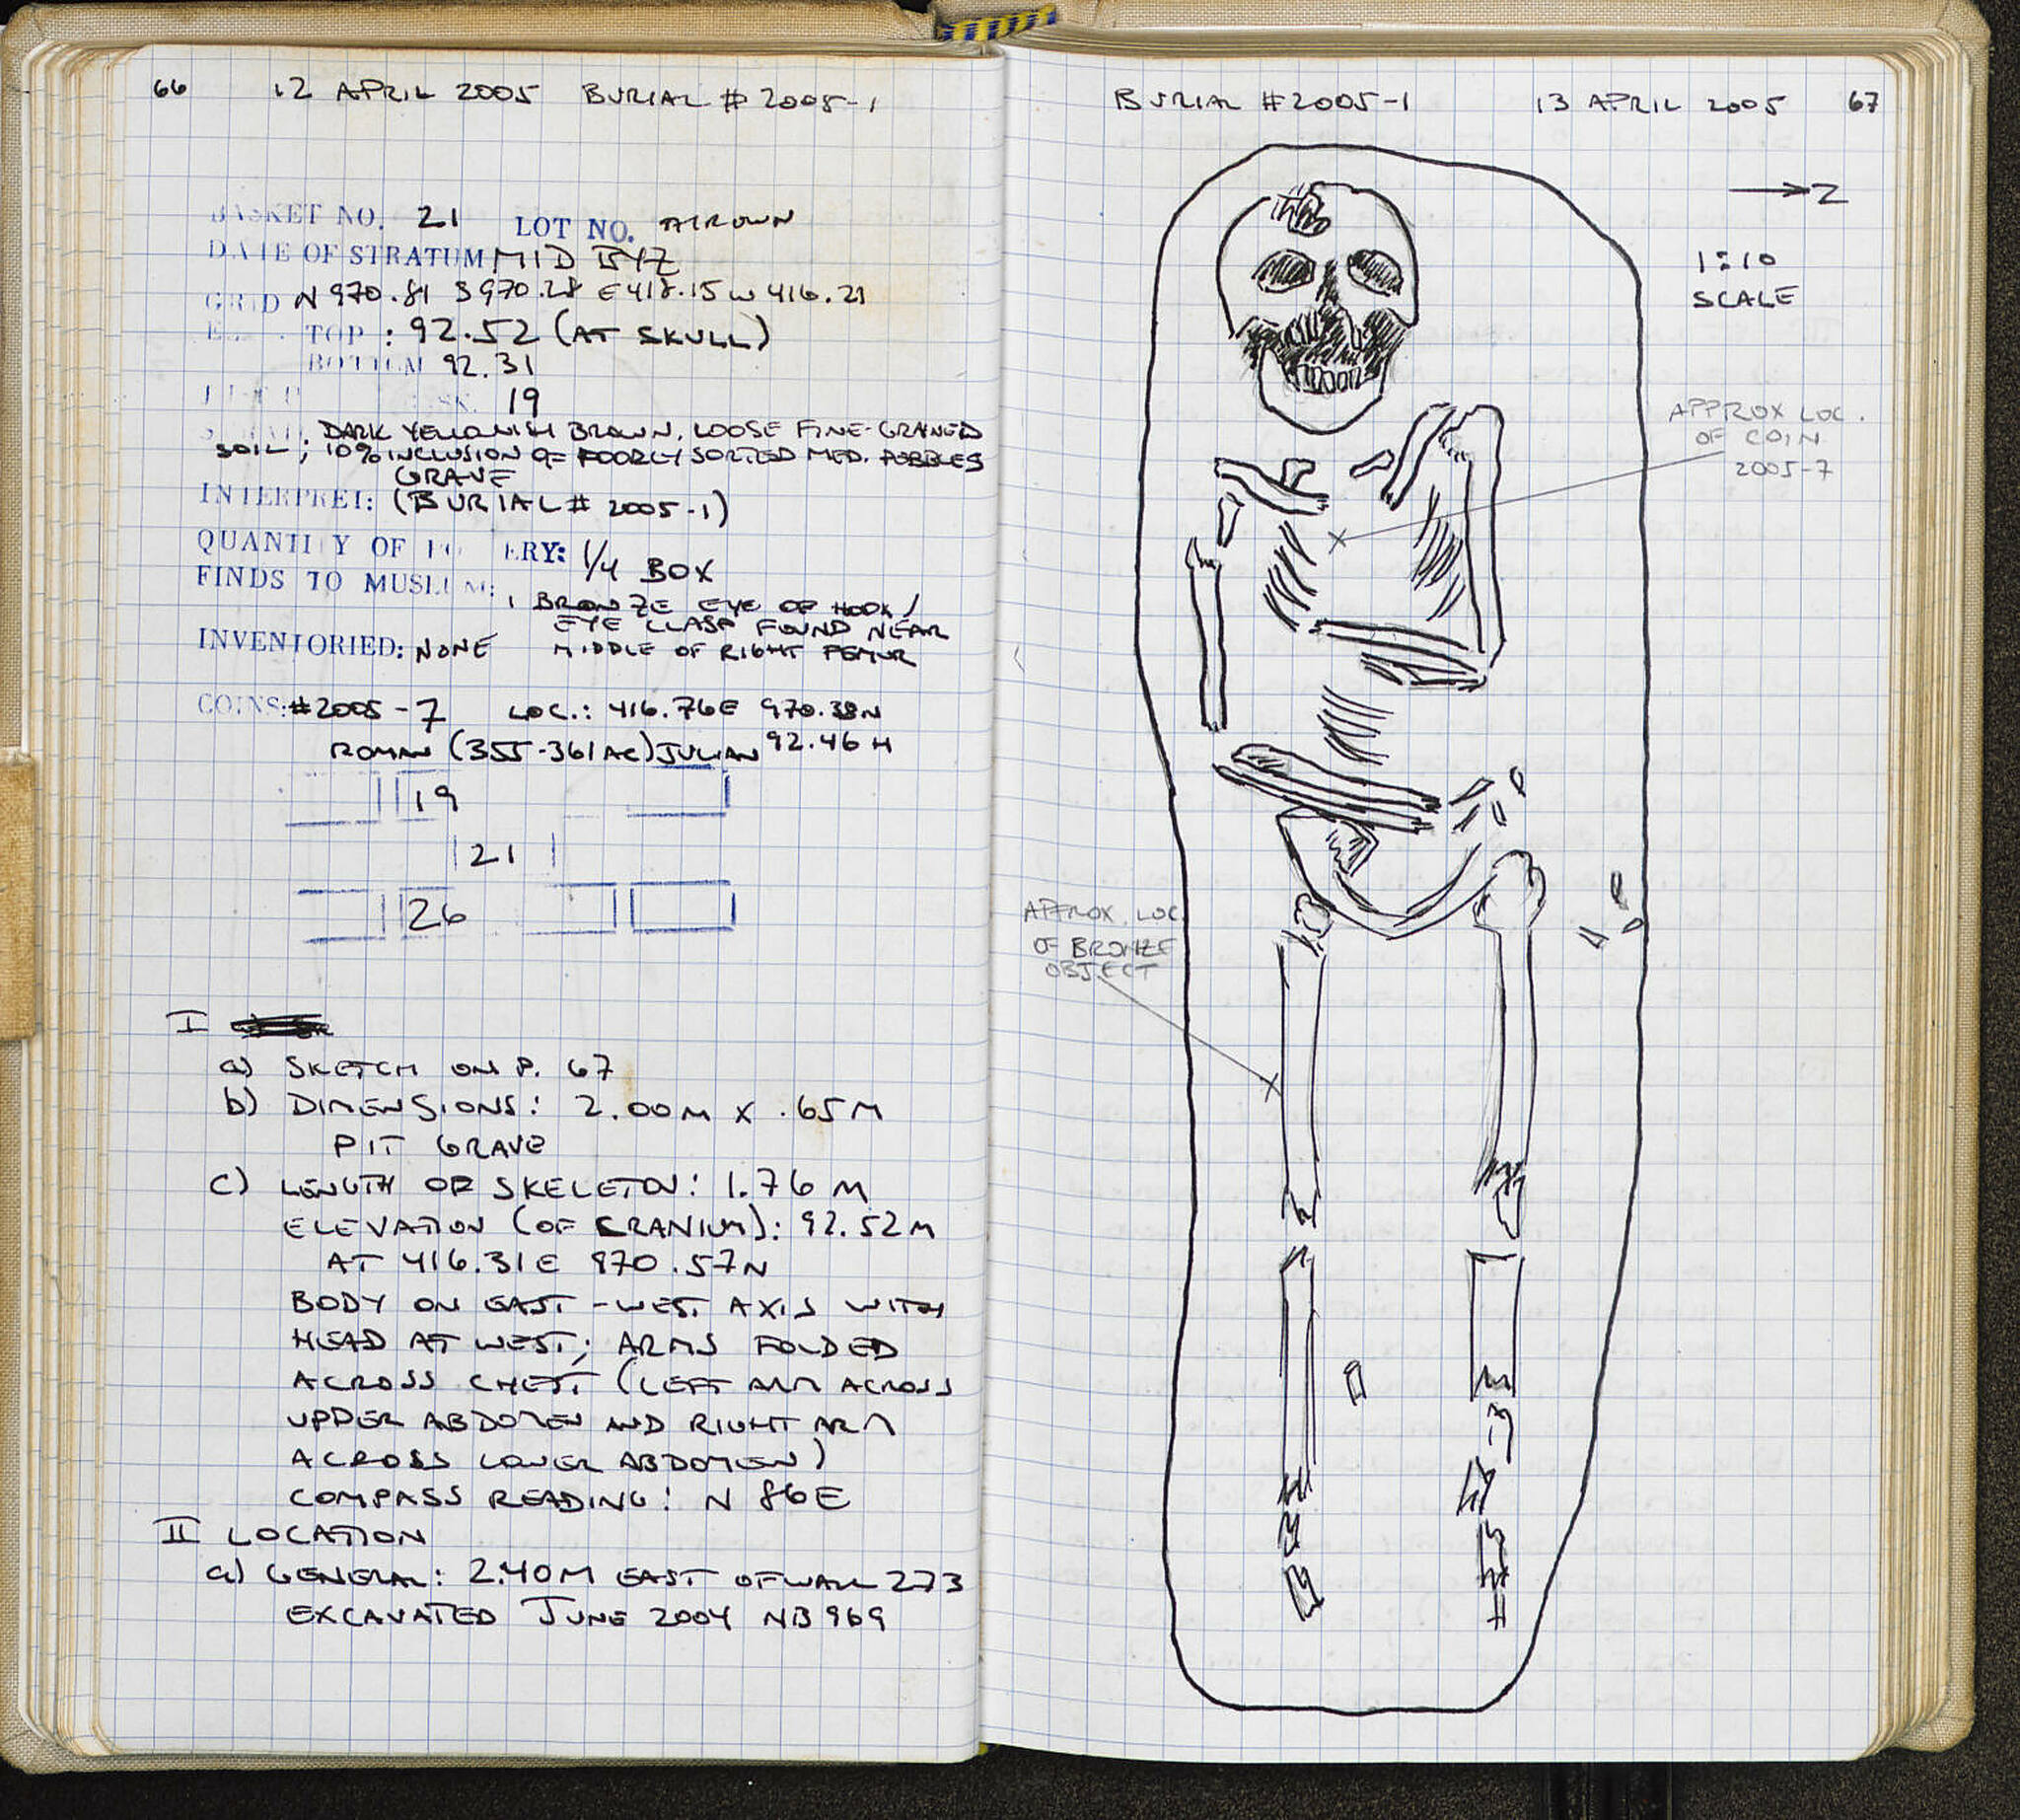 66 12 APRIL 2005 BURIAL # 2005-1
BASKET NO. 21 LOT NO. THROWN
DATE OF STRATUM MID BYZ
GRID N 970.81 S 970.28 E 418.15 W 416.21
TOP : 92.52 (AT SKULL)
BOTTOM 92.31
19
DARK YELLOWISH BROWN, LOOSE FINE-GRAINED
SOIL; 10% INCLUSION OF POORLY SORTED MED. PEBBLES
GRAVE
INTERPRET: (BURIAL # 2005-1)
QUANTITY OF POTTERY: 1/4 BOX
FINDS TO MUSEUM: 1 BRONZE EYE OF HOOK/
EYE CLASP FOUND NEAR
INVENTORIED: NONE MIDDLE OF RIGHT FEMUR
COINS: #2005-7 LOC.: 416.76E 970.38N
ROMAN (355-361 AC) JULIAN 92.46 H
19
21
26
I
a) SKETCH ON P. 67
b) DIMENSIONS: 2.00M X .65M
PIT GRAVE
c) LENGTH OF SKELETON: 1.76 M
ELEVATION (OF CRANIUM): 92.52M
AT 416.31E 970.57N
BODY ON EAST-WEST AXIS WITH
HEAD AT WEST; ARMS FOLDED
ACROSS CHEST (LEFT ARM ACROSS
UPPER ABDOMEN AND RIGHT ARM
ACROSS LOWER ABDOMEN)
COMPASS READING: N 86 E
II LOCATION
a) GENERAL: 2.40M EAST OF WALL 273
EXCAVATED JUNE 2004 NB 969
BURIAL #2005-1 13 APRIL 2005 67
N
1:10
SCALE
APPROX LOC.
OF COIN
2005-7
APPROX. LOC.
OF BRONZE
OBJECT